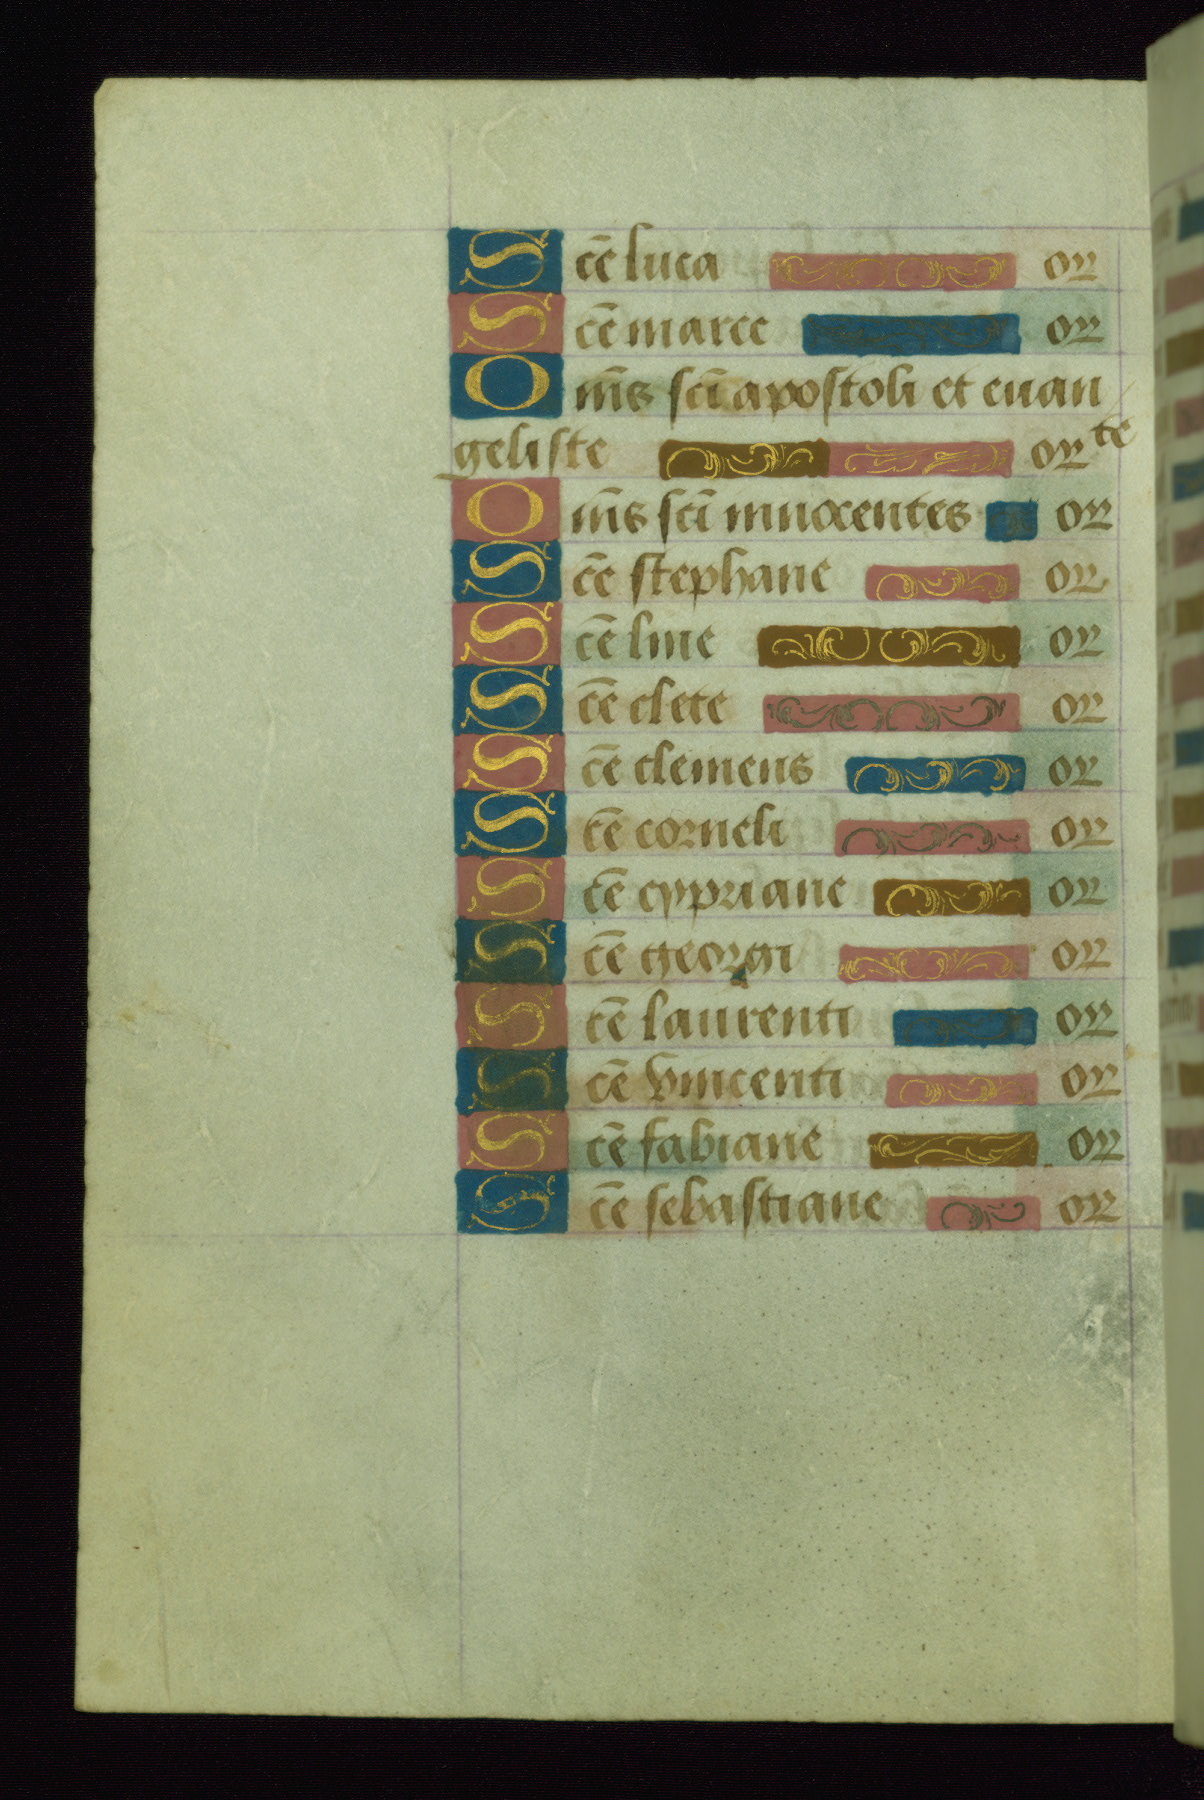 Sce luca or
Sce marce or
Oms sci apostoli et euan
geliste or te
Oms sci innocentes or
Sce stephane or
Sce line or
Sce clete or
Sce clemens or
Sce corneli or
Sce cypriane or
Sce georgi or
Sce laurenti or
Sce vincenti or
Sce fabiane or
Sce sebastiane or